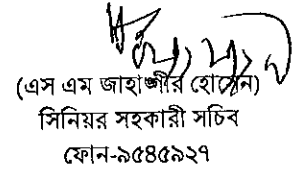 (এস এম জাহাঙ্গীর হোসেন)
সিনিয়র সহকারী সচিব
ফোন-৯৫৪৫৯২৭